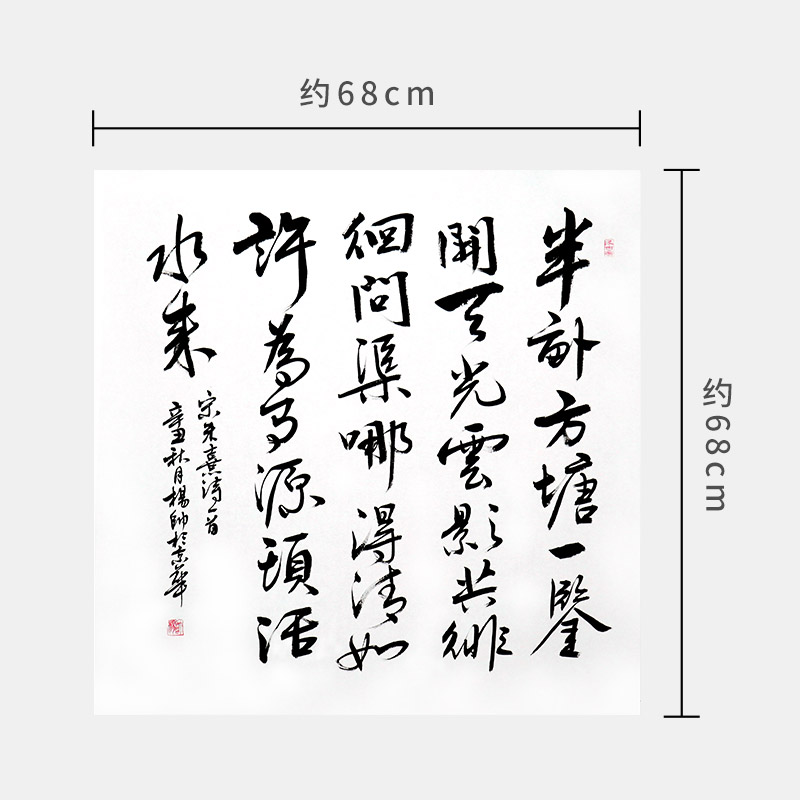 约68cm
约68cm
半畝方塘一鑒
開天光雲影共徘
徊問渠哪得清如
許為有源頭活
水来
宋朱熹詩一首
辛丑秋月楊帥於京華